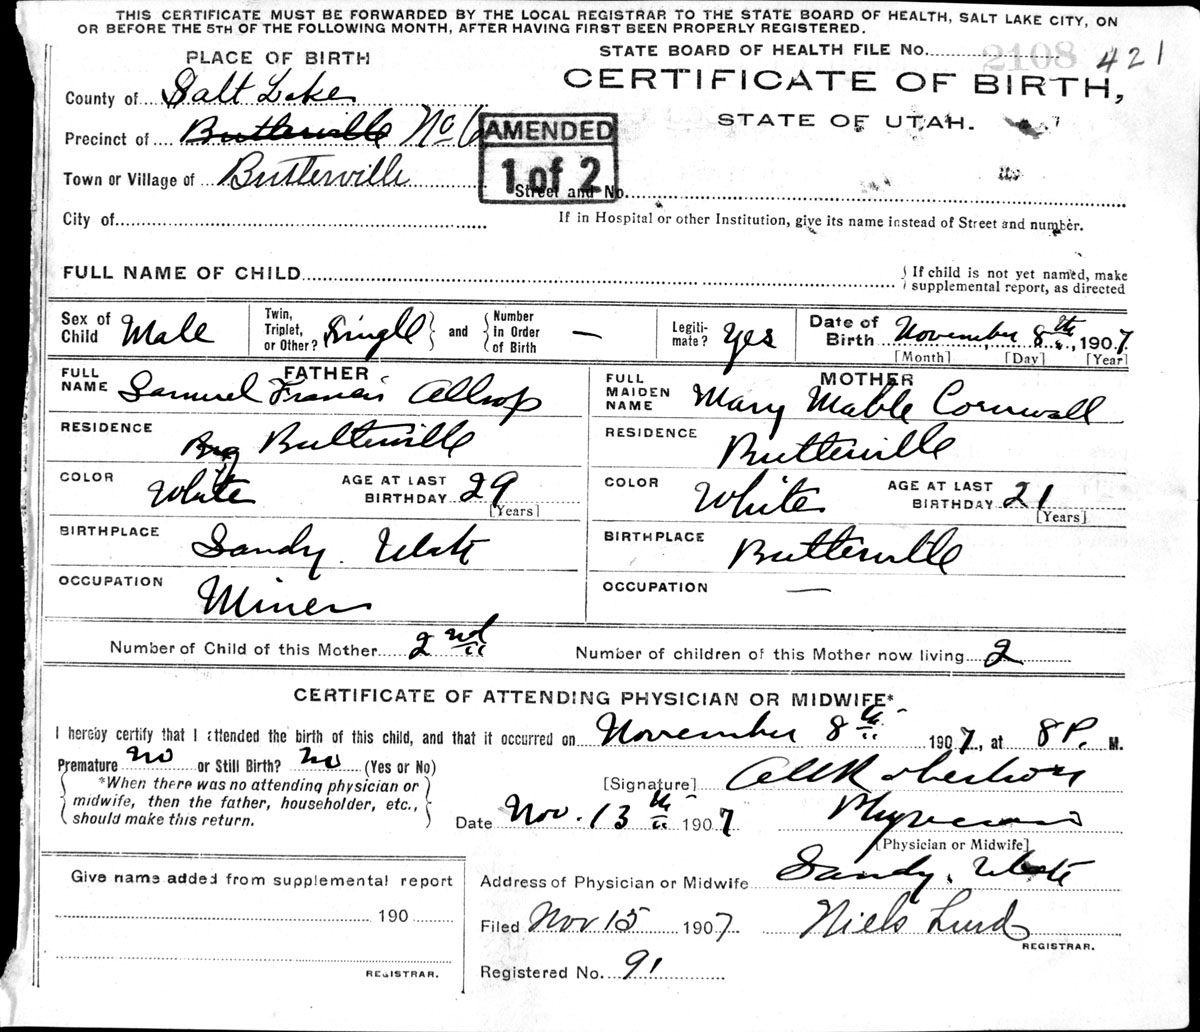 THIS CERTIFICATE MUST BE FORWARDED BY THE LOCAL REGISTRAR TO THE STATE BOARD OF HEALTH, SALT LAKE CITY, ON
OR BEFORE THE 5TH OF THE FOLLOWING MONTH, AFTER HAVING FIRST BEEN PROPERLY REGISTERED.
STATE BOARD OF HEALTH FILE No. 2108 421
PLACE OF BIRTH
CERTIFICATE OF BIRTH,
STATE OF UTAH.
County of Salt Lake
Precinct of Butlerville No 6
AMENDED
1 of 2
Town or Village of Butlerville
Street and No.
City of
If in Hospital or other Institution, give its name instead of Street and number.
FULL NAME OF CHILD
{ If child is not yet named, make
supplemental report, as directed
Sex of Child Male
Twin, Triplet, or Other? Single } and { Number in Order of Birth —
Legiti-mate? Yes
Date of Birth November 8th, 1907
[Month] [Day] [Year]
FATHER
FULL NAME Samuel Francis Allsop
RESIDENCE Butlerville
COLOR White AGE AT LAST BIRTHDAY 29
[Years]
BIRTHPLACE Sandy. Utah
OCCUPATION Miner
MOTHER
FULL MAIDEN NAME Mary Mable Cornwall
RESIDENCE Butlerville
COLOR White AGE AT LAST BIRTHDAY 21
[Years]
BIRTHPLACE Butlerville
OCCUPATION —
Number of Child of this Mother 2nd Number of children of this Mother now living 2
CERTIFICATE OF ATTENDING PHYSICIAN OR MIDWIFE*
I hereby certify that I attended the birth of this child, and that it occurred on November 8th 1907, at 8 P. M.
Premature no or Still Birth? no (Yes or No)
{ *When there was no attending physician or
midwife, then the father, householder, etc.,
should make this return. }
[Signature] Robertson
Date Nov. 13th 1907 Physician
[Physician or Midwife]
Address of Physician or Midwife Sandy. Utah
Filed Nov 15 1907 Niels Lind
REGISTRAR.
Registered No. 91
Give name added from supplemental report
190
REGISTRAR.